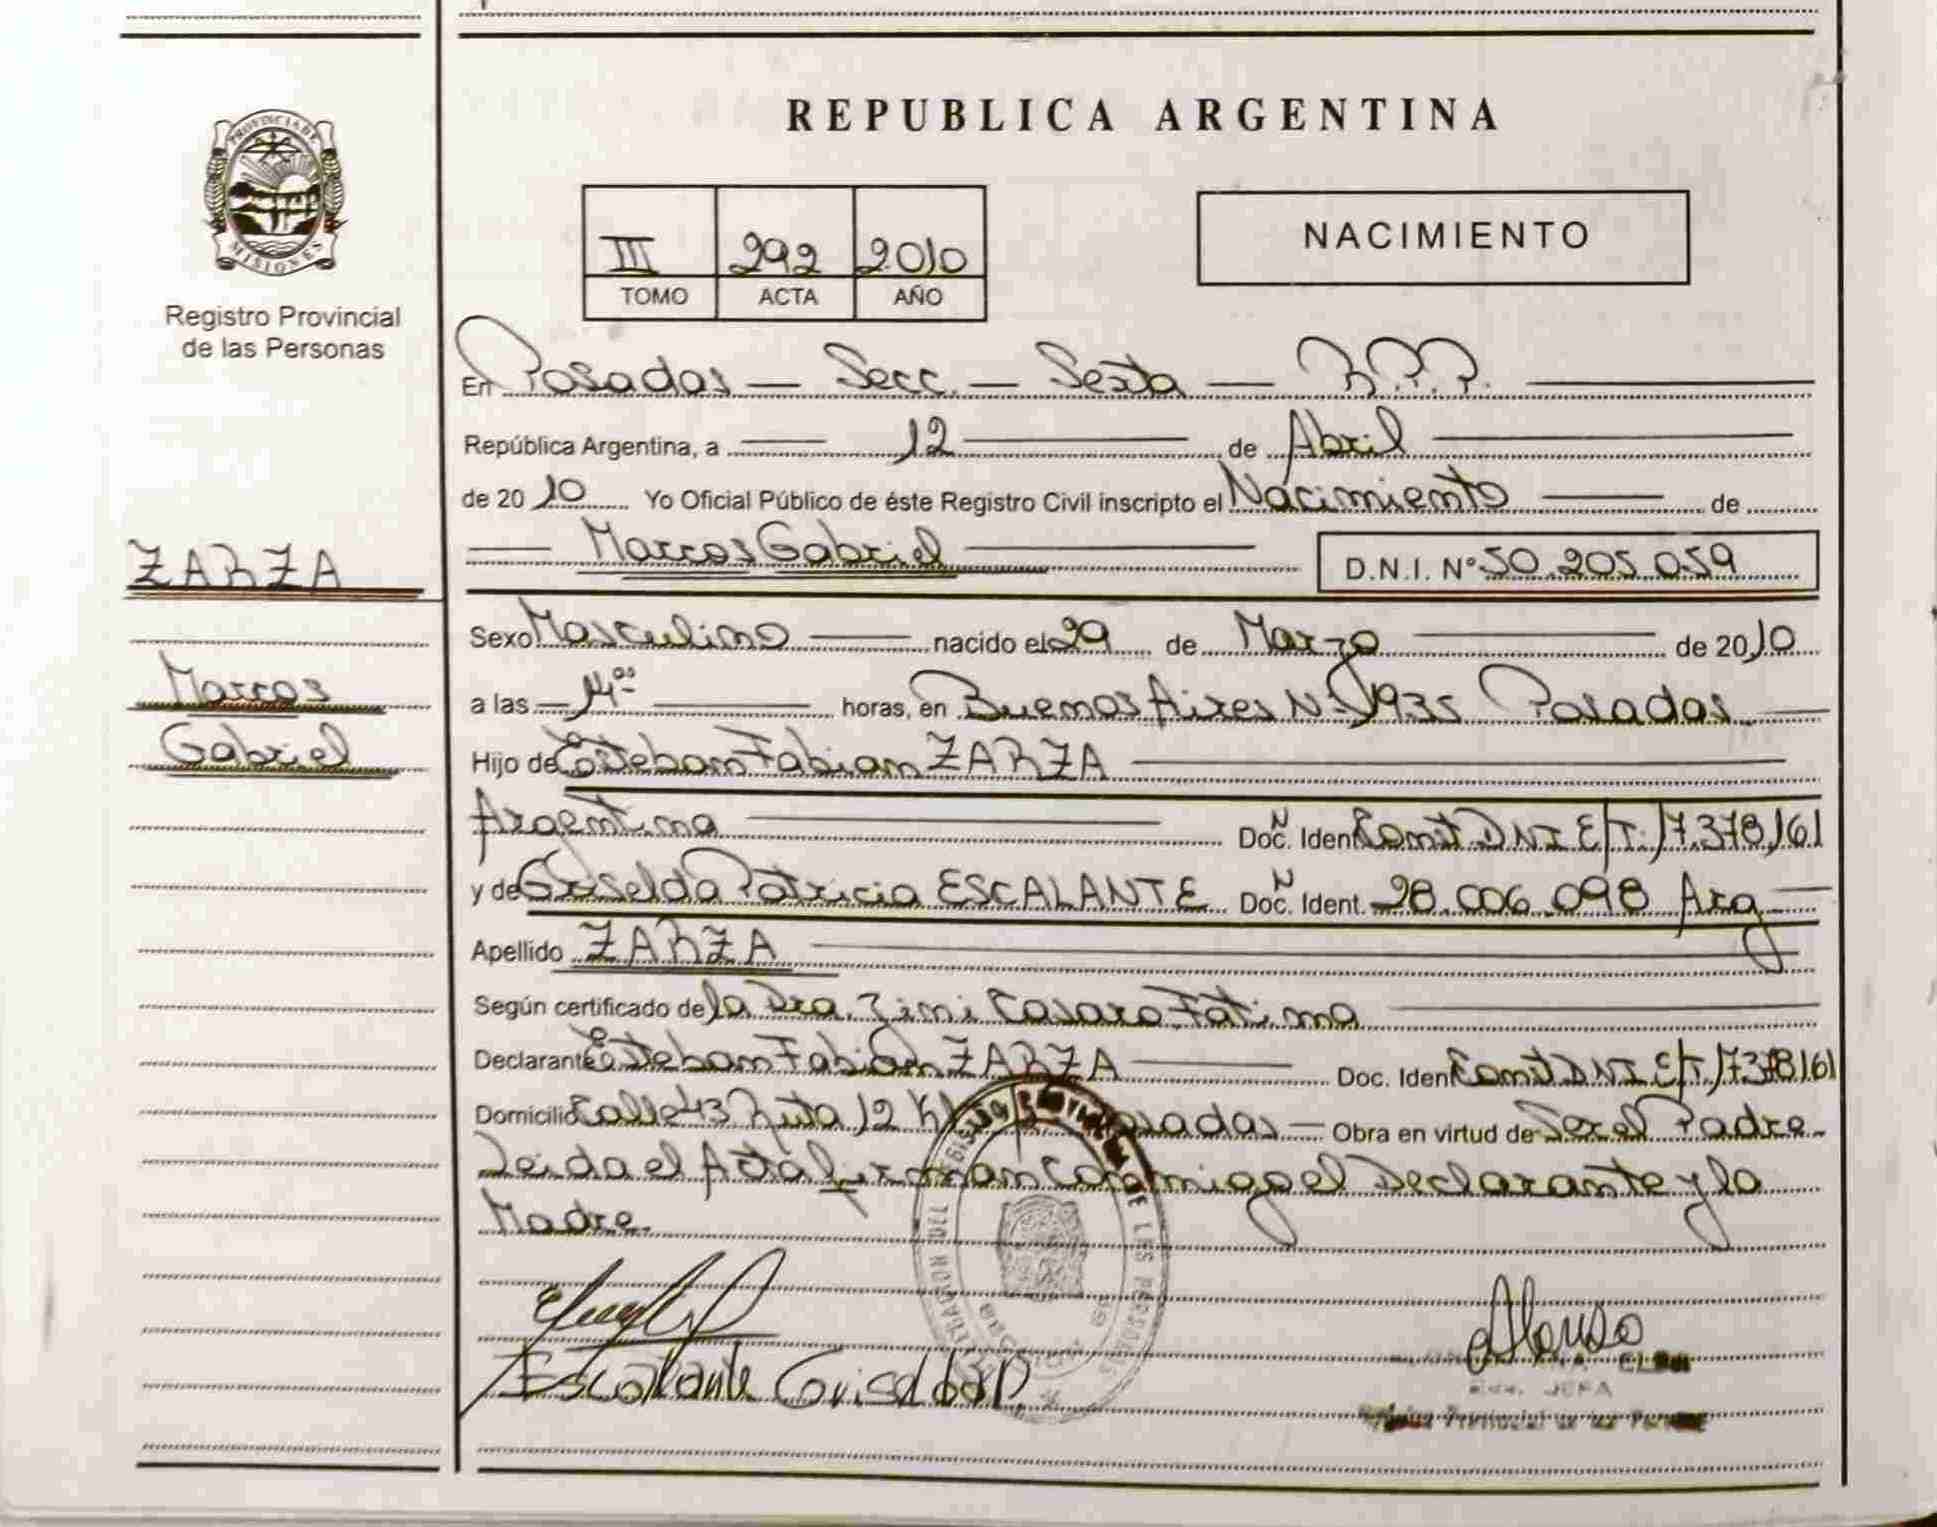 PROVINCIA DE
MISIONES
Registro Provincial
de las Personas
ZARZA
Marcos
Gabriel
REPUBLICA ARGENTINA
III 292 2010
TOMO ACTA AÑO
NACIMIENTO
En Posadas — Secc. — Sexta — R.P.P.
República Argentina, a 12 de Abril
de 2010 Yo Oficial Público de éste Registro Civil inscripto el Nacimiento de
Marcos Gabriel D.N.I. Nº 50.205.059
Sexo Masculino nacido el 29 de Marzo de 2010
a las 14 horas, en Buenos Aires Nº 1935 Posadas.
Hijo de Esteban Fabian ZARZA
Argentina Doc. Ident. DNI E/T. 17.378.161
y de Griselda Patricia ESCALANTE Doc. Ident. 28.006.098 Arg
Apellido ZARZA
Según certificado de la Dra. Casaro Fatima
Declarante Esteban Fabian ZARZA Doc. Ident. DNI E/T. 17378161
Domicilio Calle 43 Ruta 12 Posadas — Obra en virtud de Ser el Padre.
Leida el Acta firman conmigo el Declarante y la
Madre.
Escalante Griselda P.
JEFA